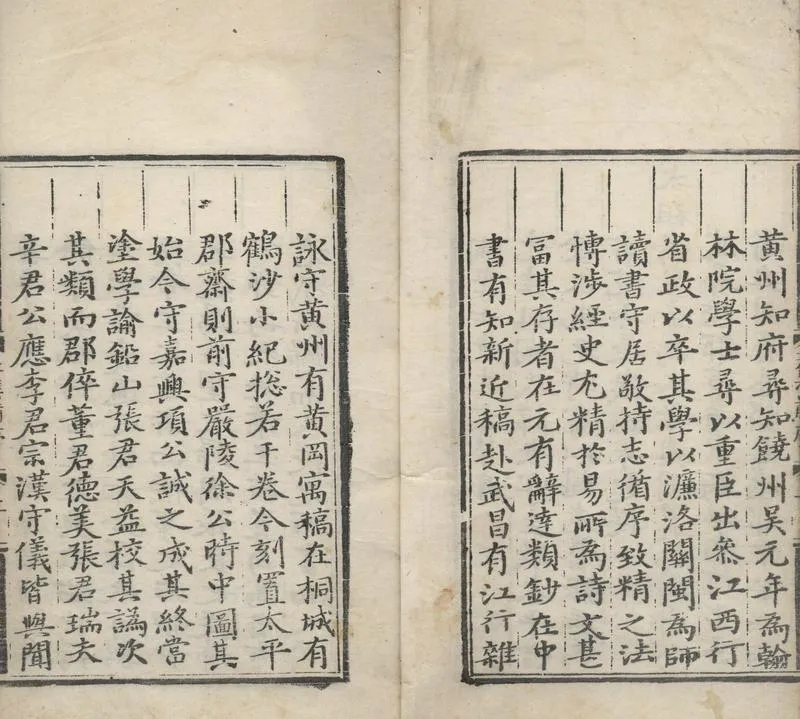 黄州知府尋知饒州吳元年為翰
林院學士尋以重臣出叅江西行
省政以卒其學以濂洛關閩為師
讀書守居敬持志循序致精之法
愽渉經史尤精於易所為詩文甚
冨其存者在元有辭達類鈔在中
書有知新近稿赴武昌有江行雜
詠守黄州有黄岡寓稿在桐城有
鶴沙小紀捴若干卷今刻置太平
郡齋則前守嚴陵徐公時中圖其
始今守嘉興項公誠之成其終當
塗學諭鉛山張君天益校其譌次
其類而郡倅董君德美張君瑞夫
辛君公應李君宗漢守儀皆與聞